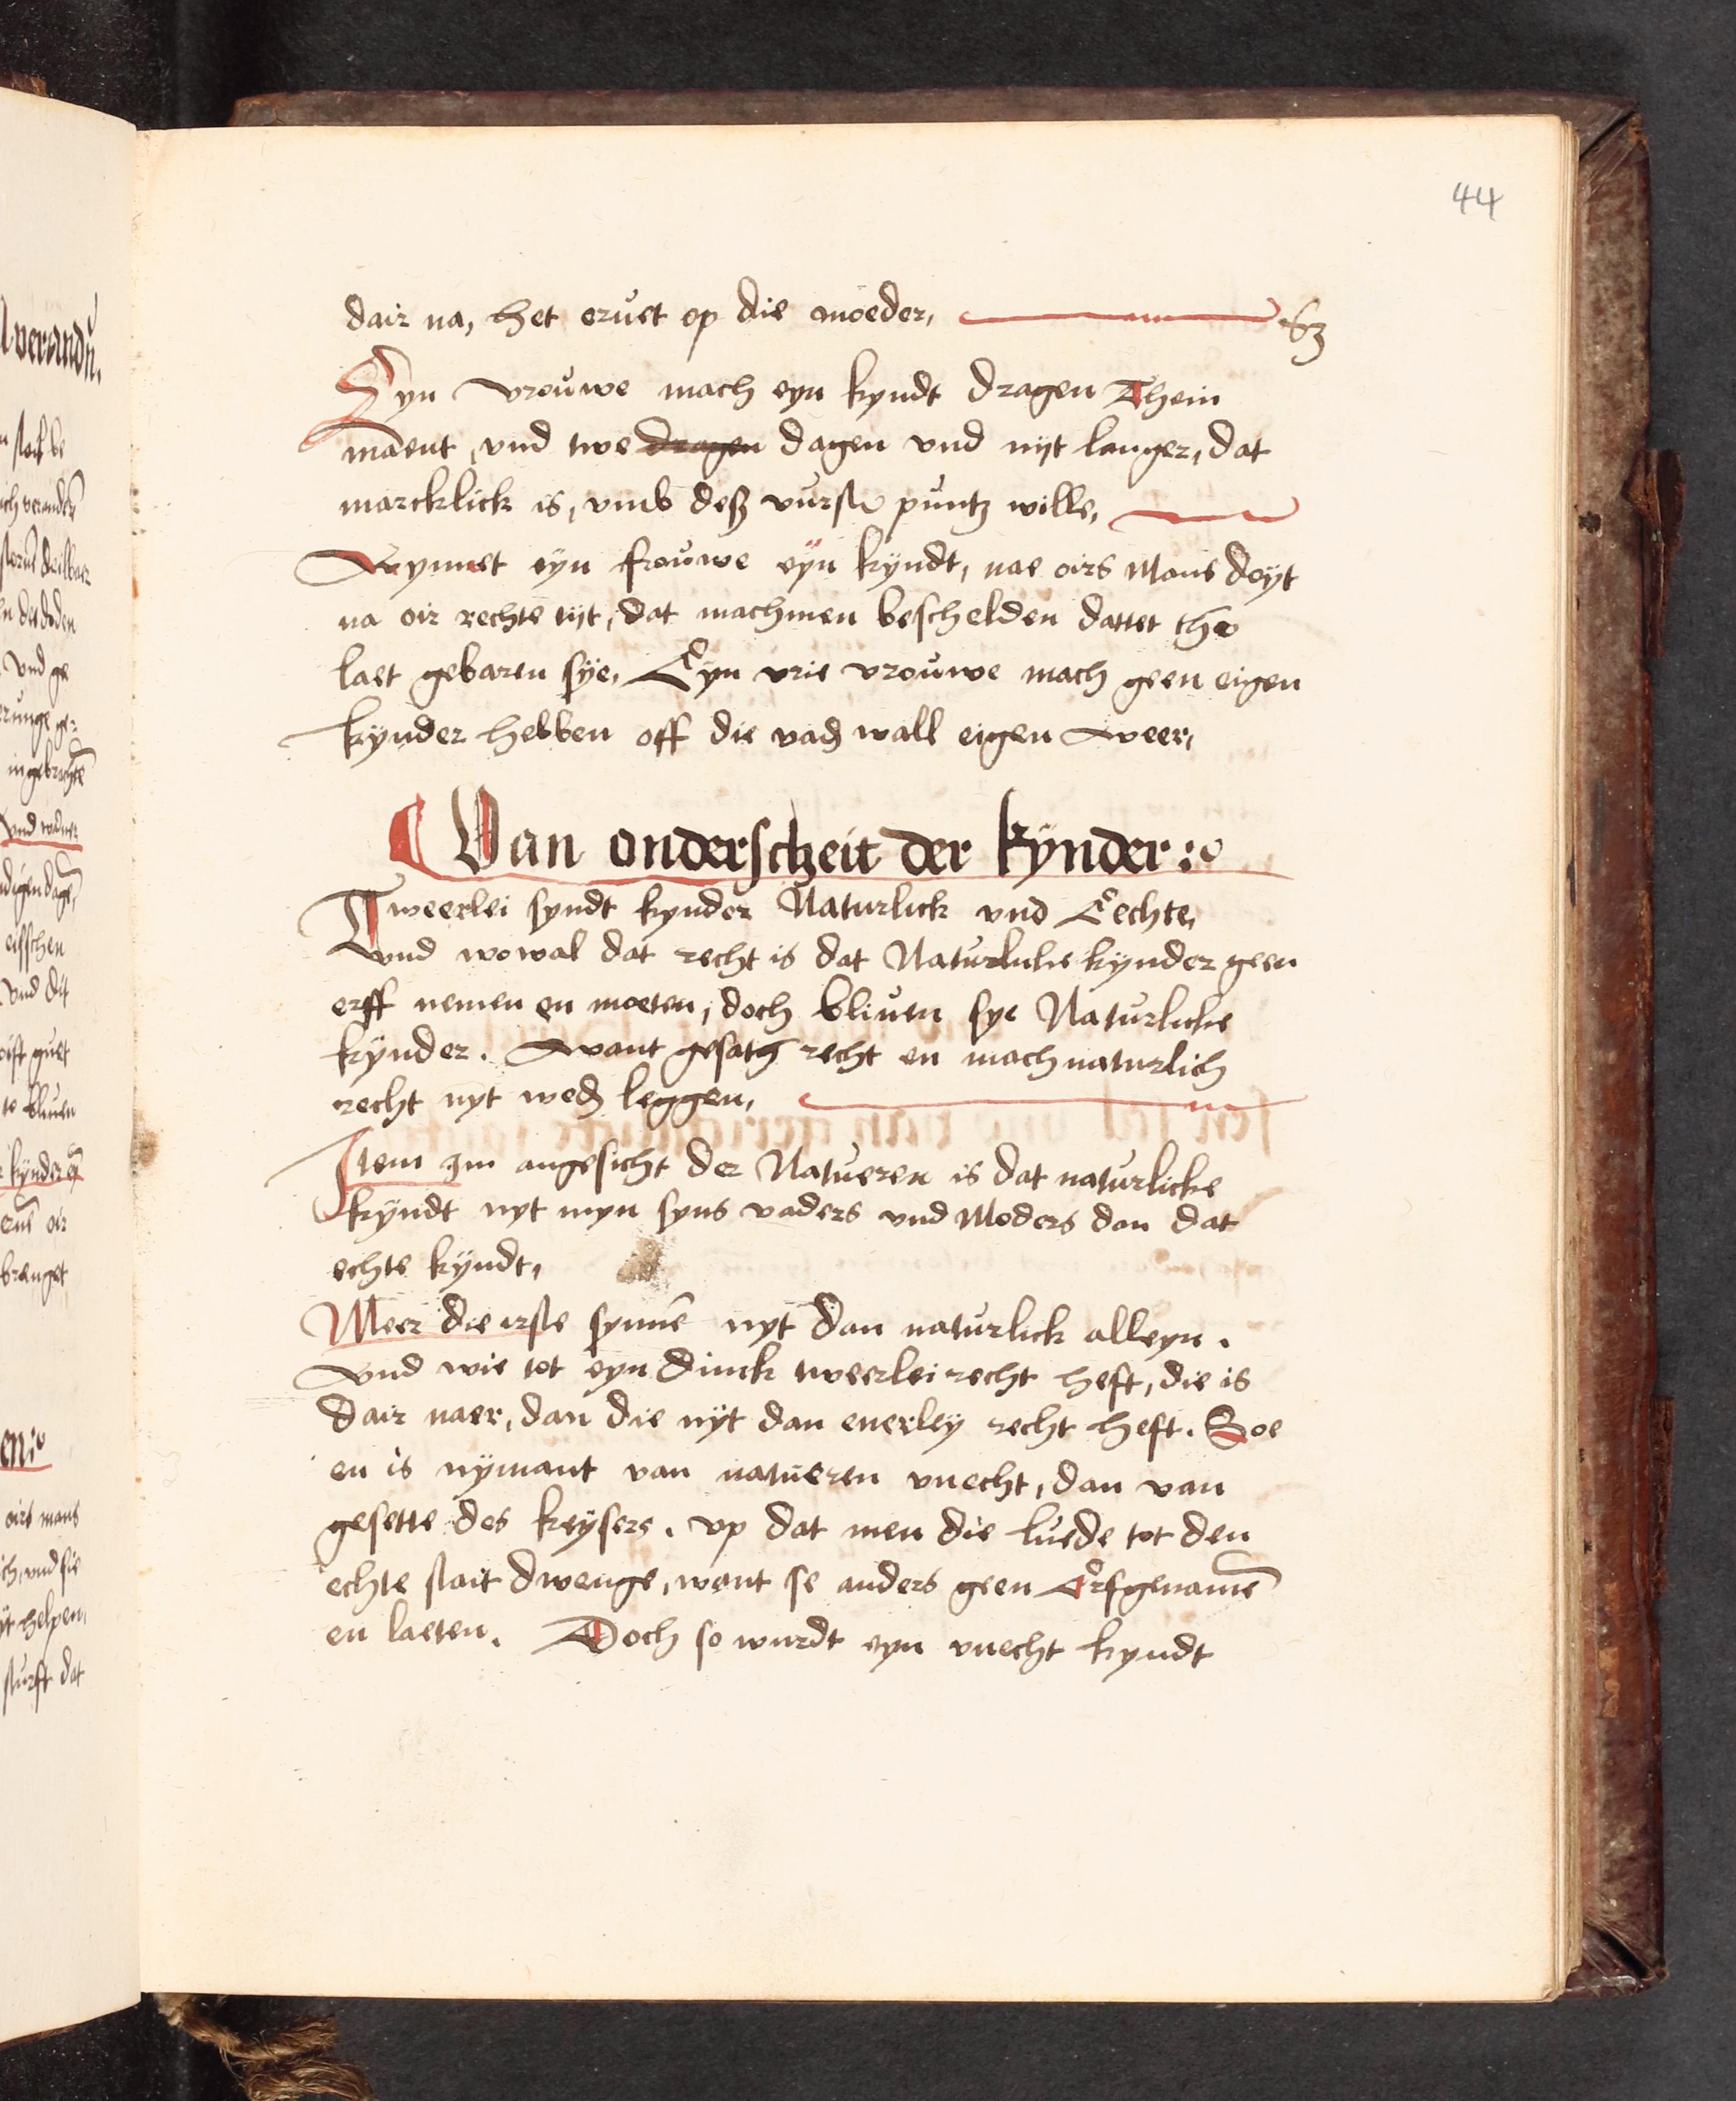 44
dair na, het eruet op die moeder,
Eyn vrouwe mach eyn kyndt dragen Thein
maent, vnd twe dragen dagen vnd nyt langer, dat
marcklick is, vmb deß vurst puntz wille,
Wynnet eyn frouwe eyn kyndt, nae oirs Mans doyt
na oir rechte tyt, dat machmen beschelden dattet tho
laet gebaren sye, Eyn vrie vrouwe mach geen eigen
kynder hebben off die vad wall eigen weer,
Van onderscheit der kynder :
Tweerlei syndt kynder Naturlick vnd Eechte,
vnd wowal dat recht is dat Naturlicke kynder geen
erff nemen en moeten, doch bliuen sye Naturlicke
kynder. want gesatz recht en mach naturlich
recht nyt wed leggen,
Item Im angesicht der Natueren is dat naturlicke
kyndt nyt myn syns vaders vnd Moders dan dat
echte kyndt,
Meer die irste synnē nyt dan naturlick alleyn.
vnd wie tot eyn dinck tweerlei recht heft, die is
dair naer, dan die nyt dan enerley recht heft. Soe
en is nymant van natueren vnecht, dan van
gesette des keysers. vp dat men die luede tot den
echte stait dwenge, want se anders geen Erfgenamē
en laeten. Doch so wurdt eyn vnecht kyndt